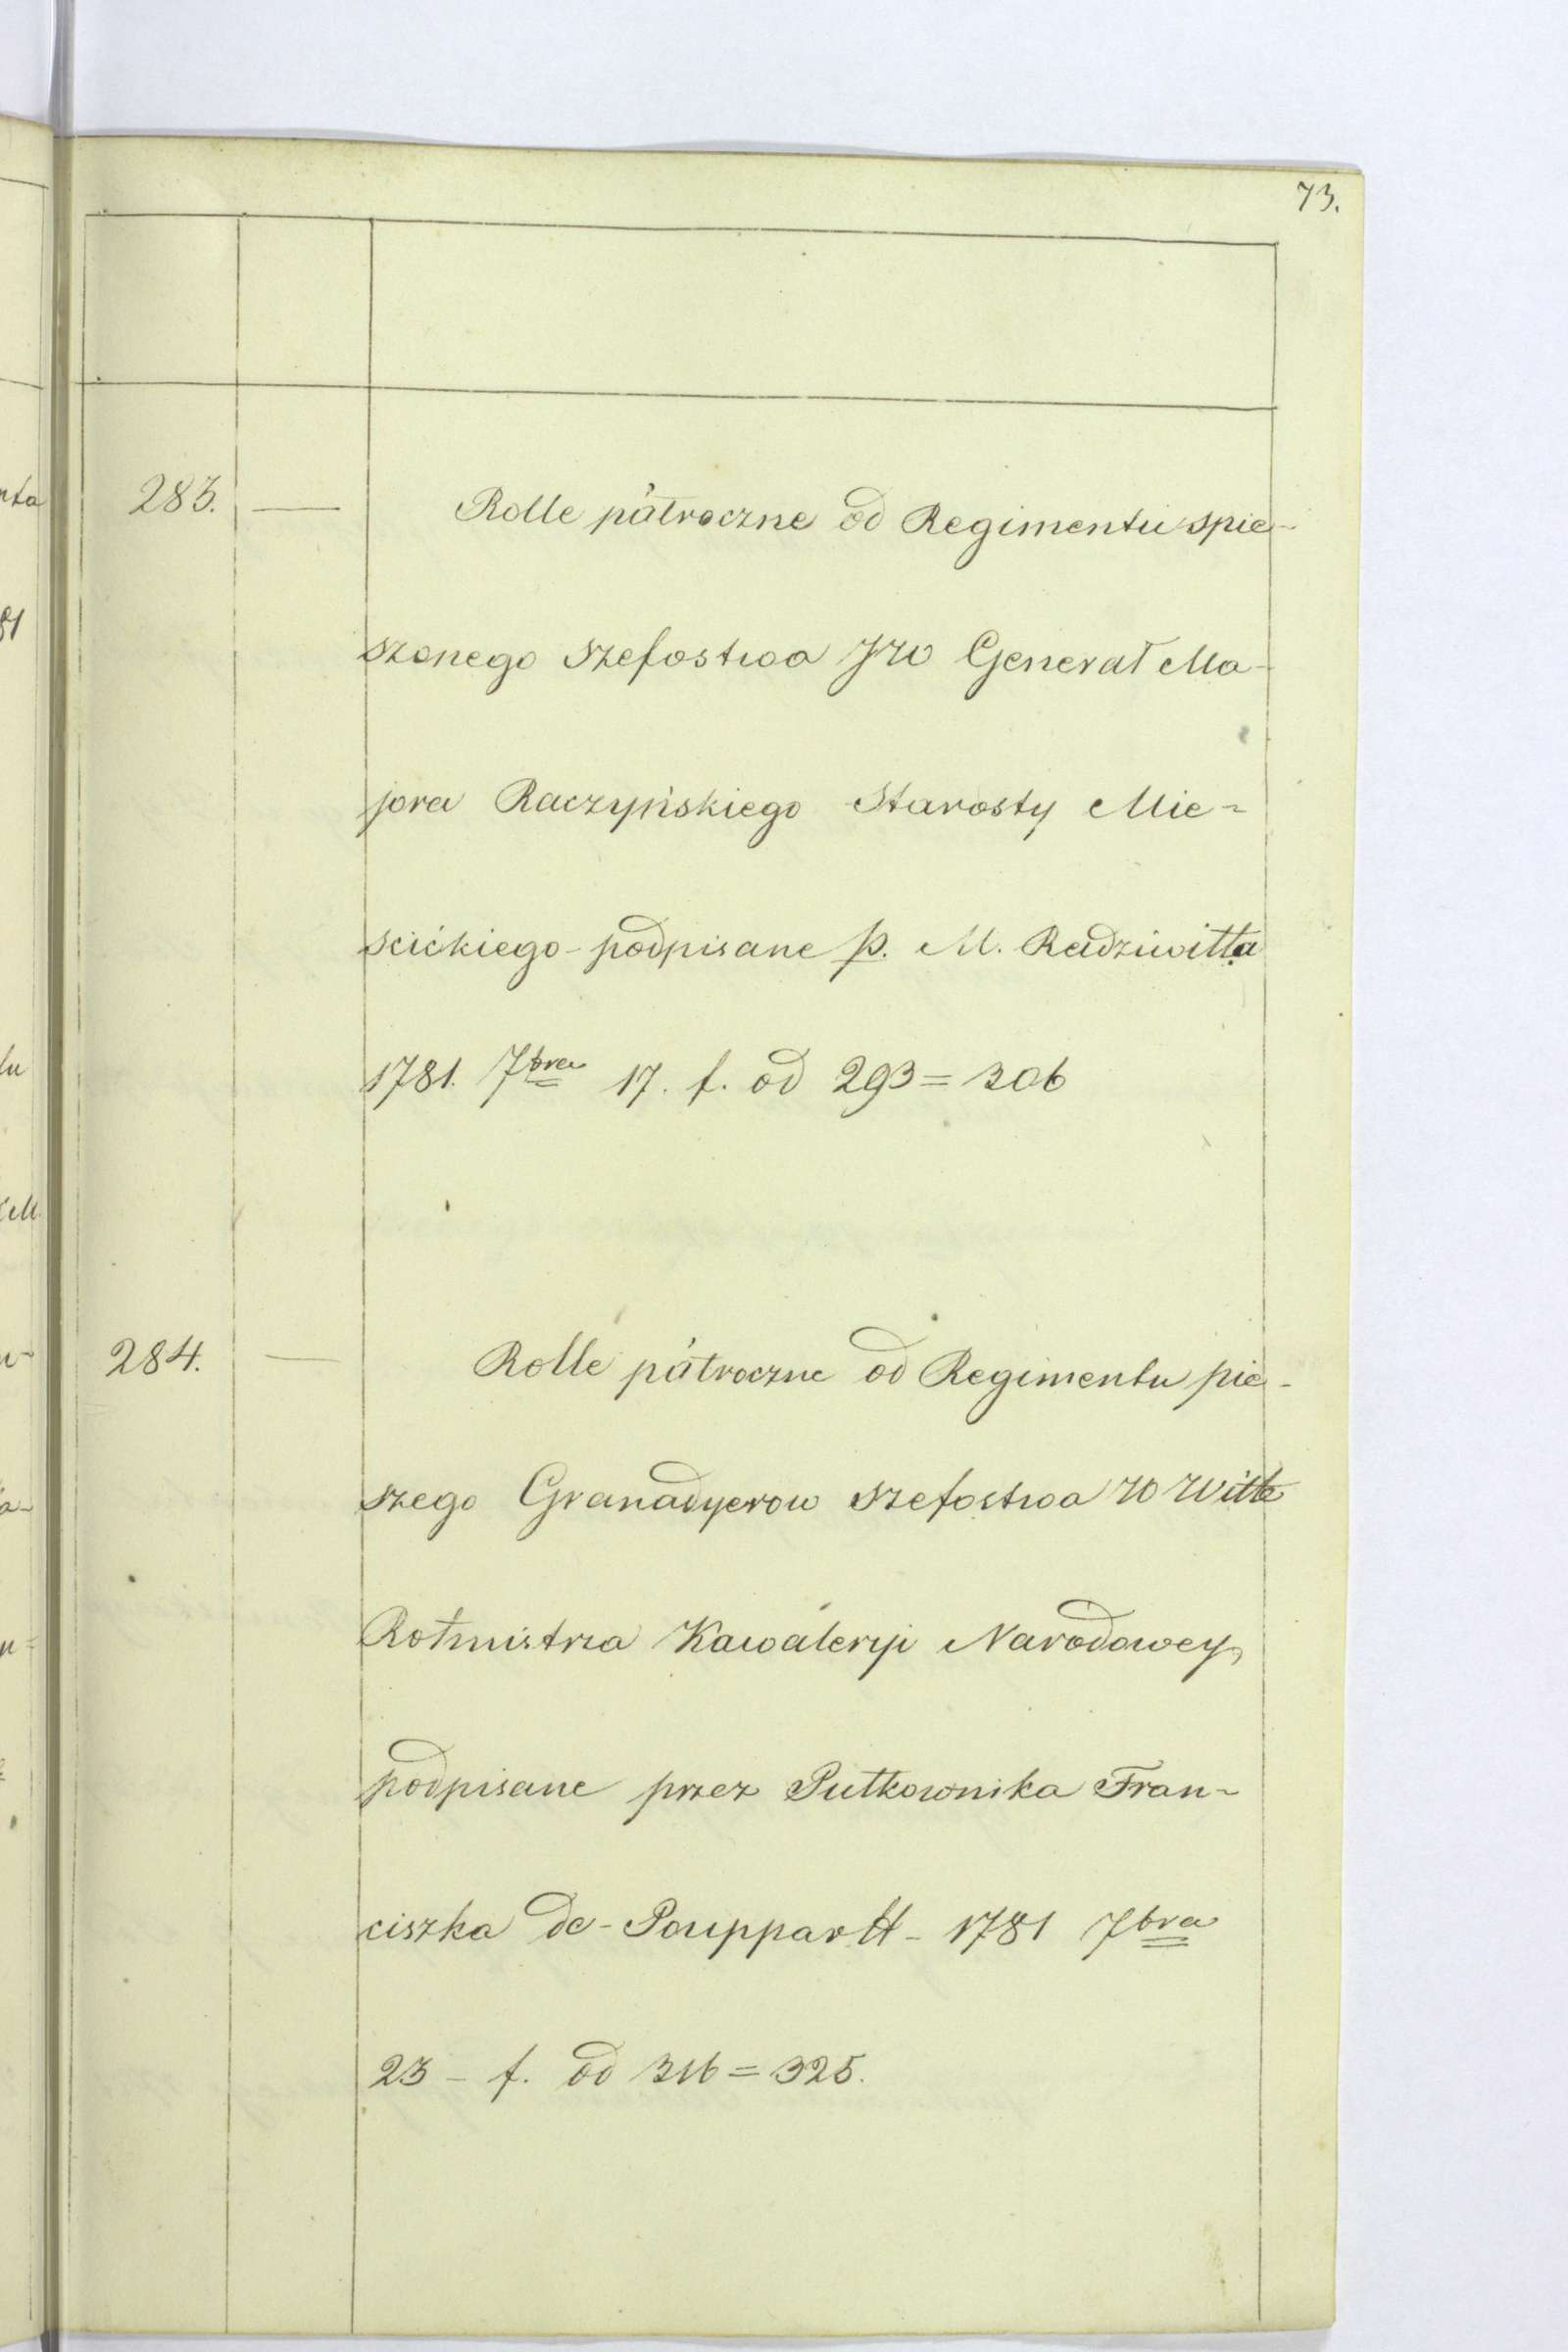 73.
283. — Rolle pátroczne od Regimentu spie-
szonego Szefostwa JW Generał Ma-
jora Raczyńskiego Starosty Mie-
scićkiego - podpisane p. M. Radziwiłła
1781. 7bra 17. f. od 293 = 306
284. — Rolle pátroczne od Regimentu pie-
szego Granadyerow Szefostwa W Witte
Rotmistrza Kawaleryi Narodowey,
podpisane przez Pułkownika Fran-
ciszka de - Pouppart - 1781 7bra
23 - f. od 316 = 325.